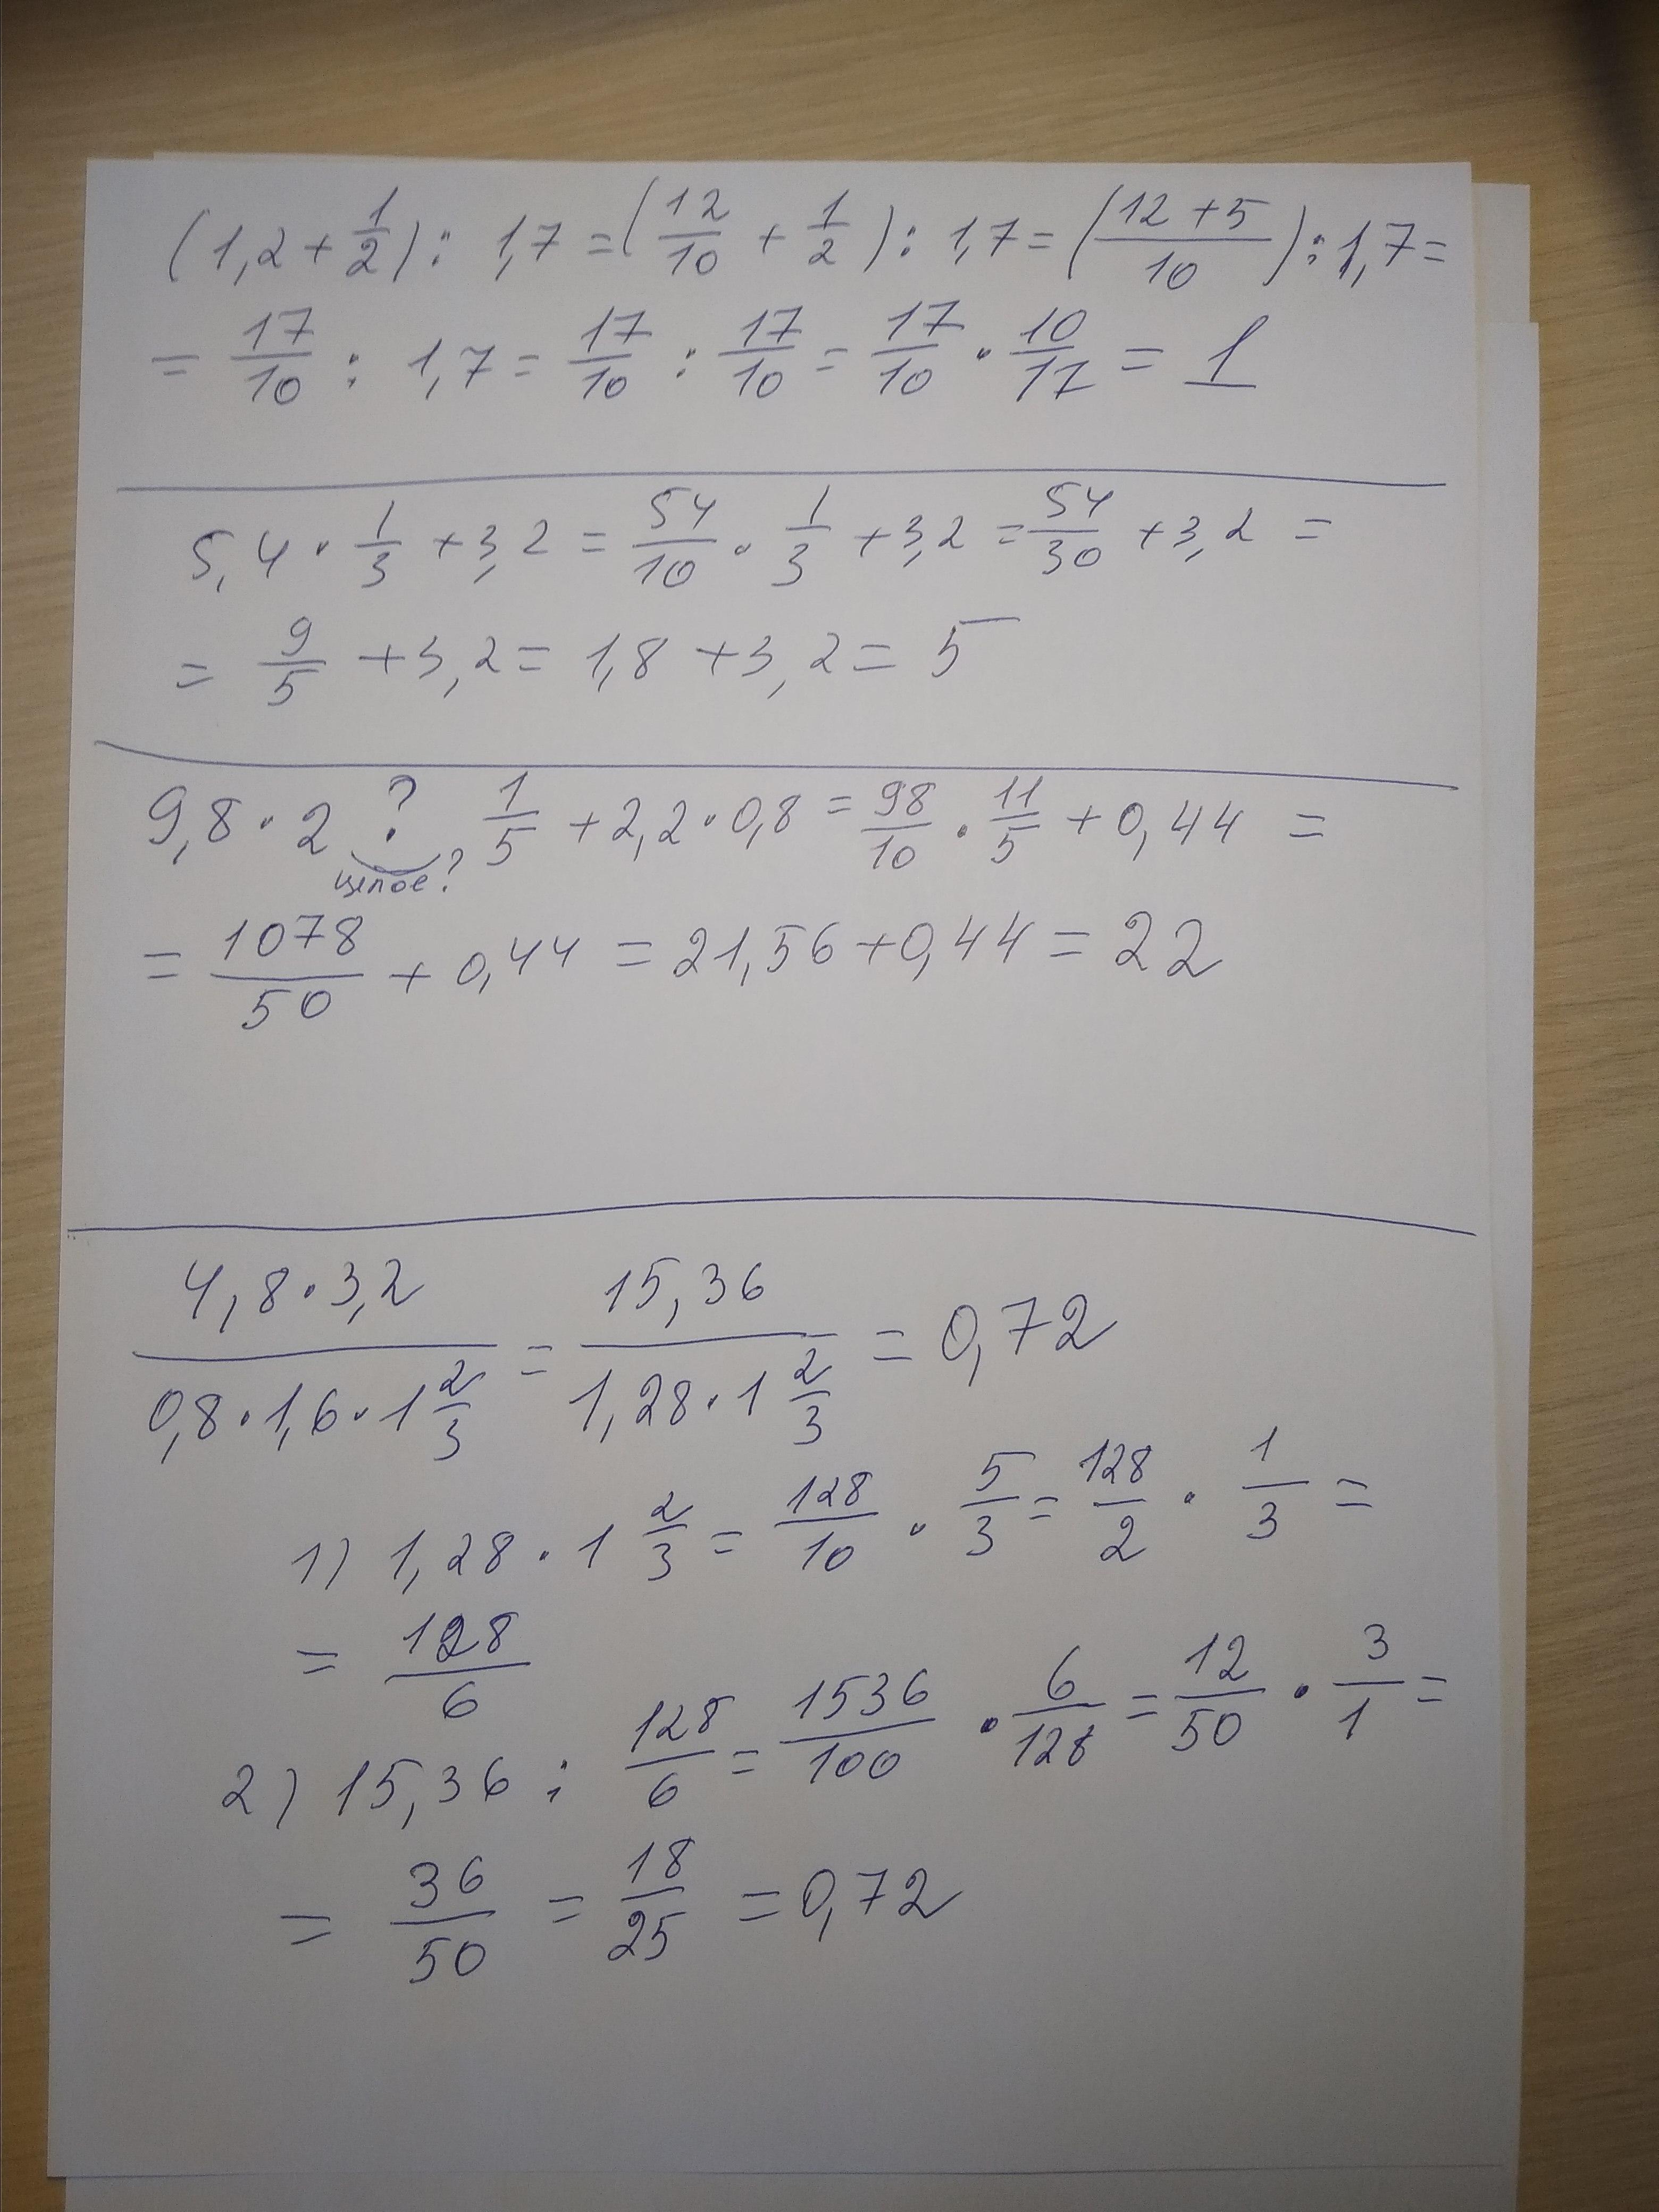 (1,2 + 1/2) : 1,7 = (12/10 + 1/2) : 1,7 = ((12 + 5)/10) : 1,7 =
= 17/10 : 1,7 = 17/10 : 17/10 = 17/10 · 10/17 = 1
5,4 · 1/3 + 3,2 = 54/10 · 1/3 + 3,2 = 54/30 + 3,2 =
= 9/5 + 3,2 = 1,8 + 3,2 = 5
9,8 · 2 ? 1/5 + 2,2 · 0,8 = 98/10 · 11/5 + 0,44 =
целое?
= 1078/50 + 0,44 = 21,56 + 0,44 = 22
(4,8 · 3,2)/(0,8 · 1,6 · 1 2/3) = 15,36/(1,28 · 1 2/3) = 0,72
1) 1,28 · 1 2/3 = 128/10 · 5/3 = 128/2 · 1/3 =
= 128/6
2) 15,36 : 128/6 = 1536/100 · 6/128 = 12/50 · 3/1 =
= 36/50 = 18/25 = 0,72